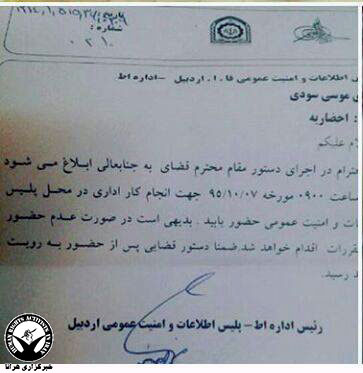 شماره:
۰۲۱۰
اطلاعات و امنیت عمومی فا.ا. اردبیل -اداره اط
موسی سودی
: احضاریه
علیکم
در اجرای دستور مقام محترم قضای به جنابعالی ابلاغ می شود
ساعت ۰۹۰۰ مورخه ۹۵/۱۰/۰۷ جهت انجام کار اداری در محل پلیس
و امنیت عمومی حضور یابید . بدیهی است در صورت عدم حضور
اقدام خواهد شد.ضمنا دستور قضایی پس از حضور به رویت
رسید.
رئیس اداره اط - پلیس اطلاعات و امنیت عمومی اردبیل
HUMAN RIGHTS ACTIVISTS IN IRAN
خبرگزاری هرانا